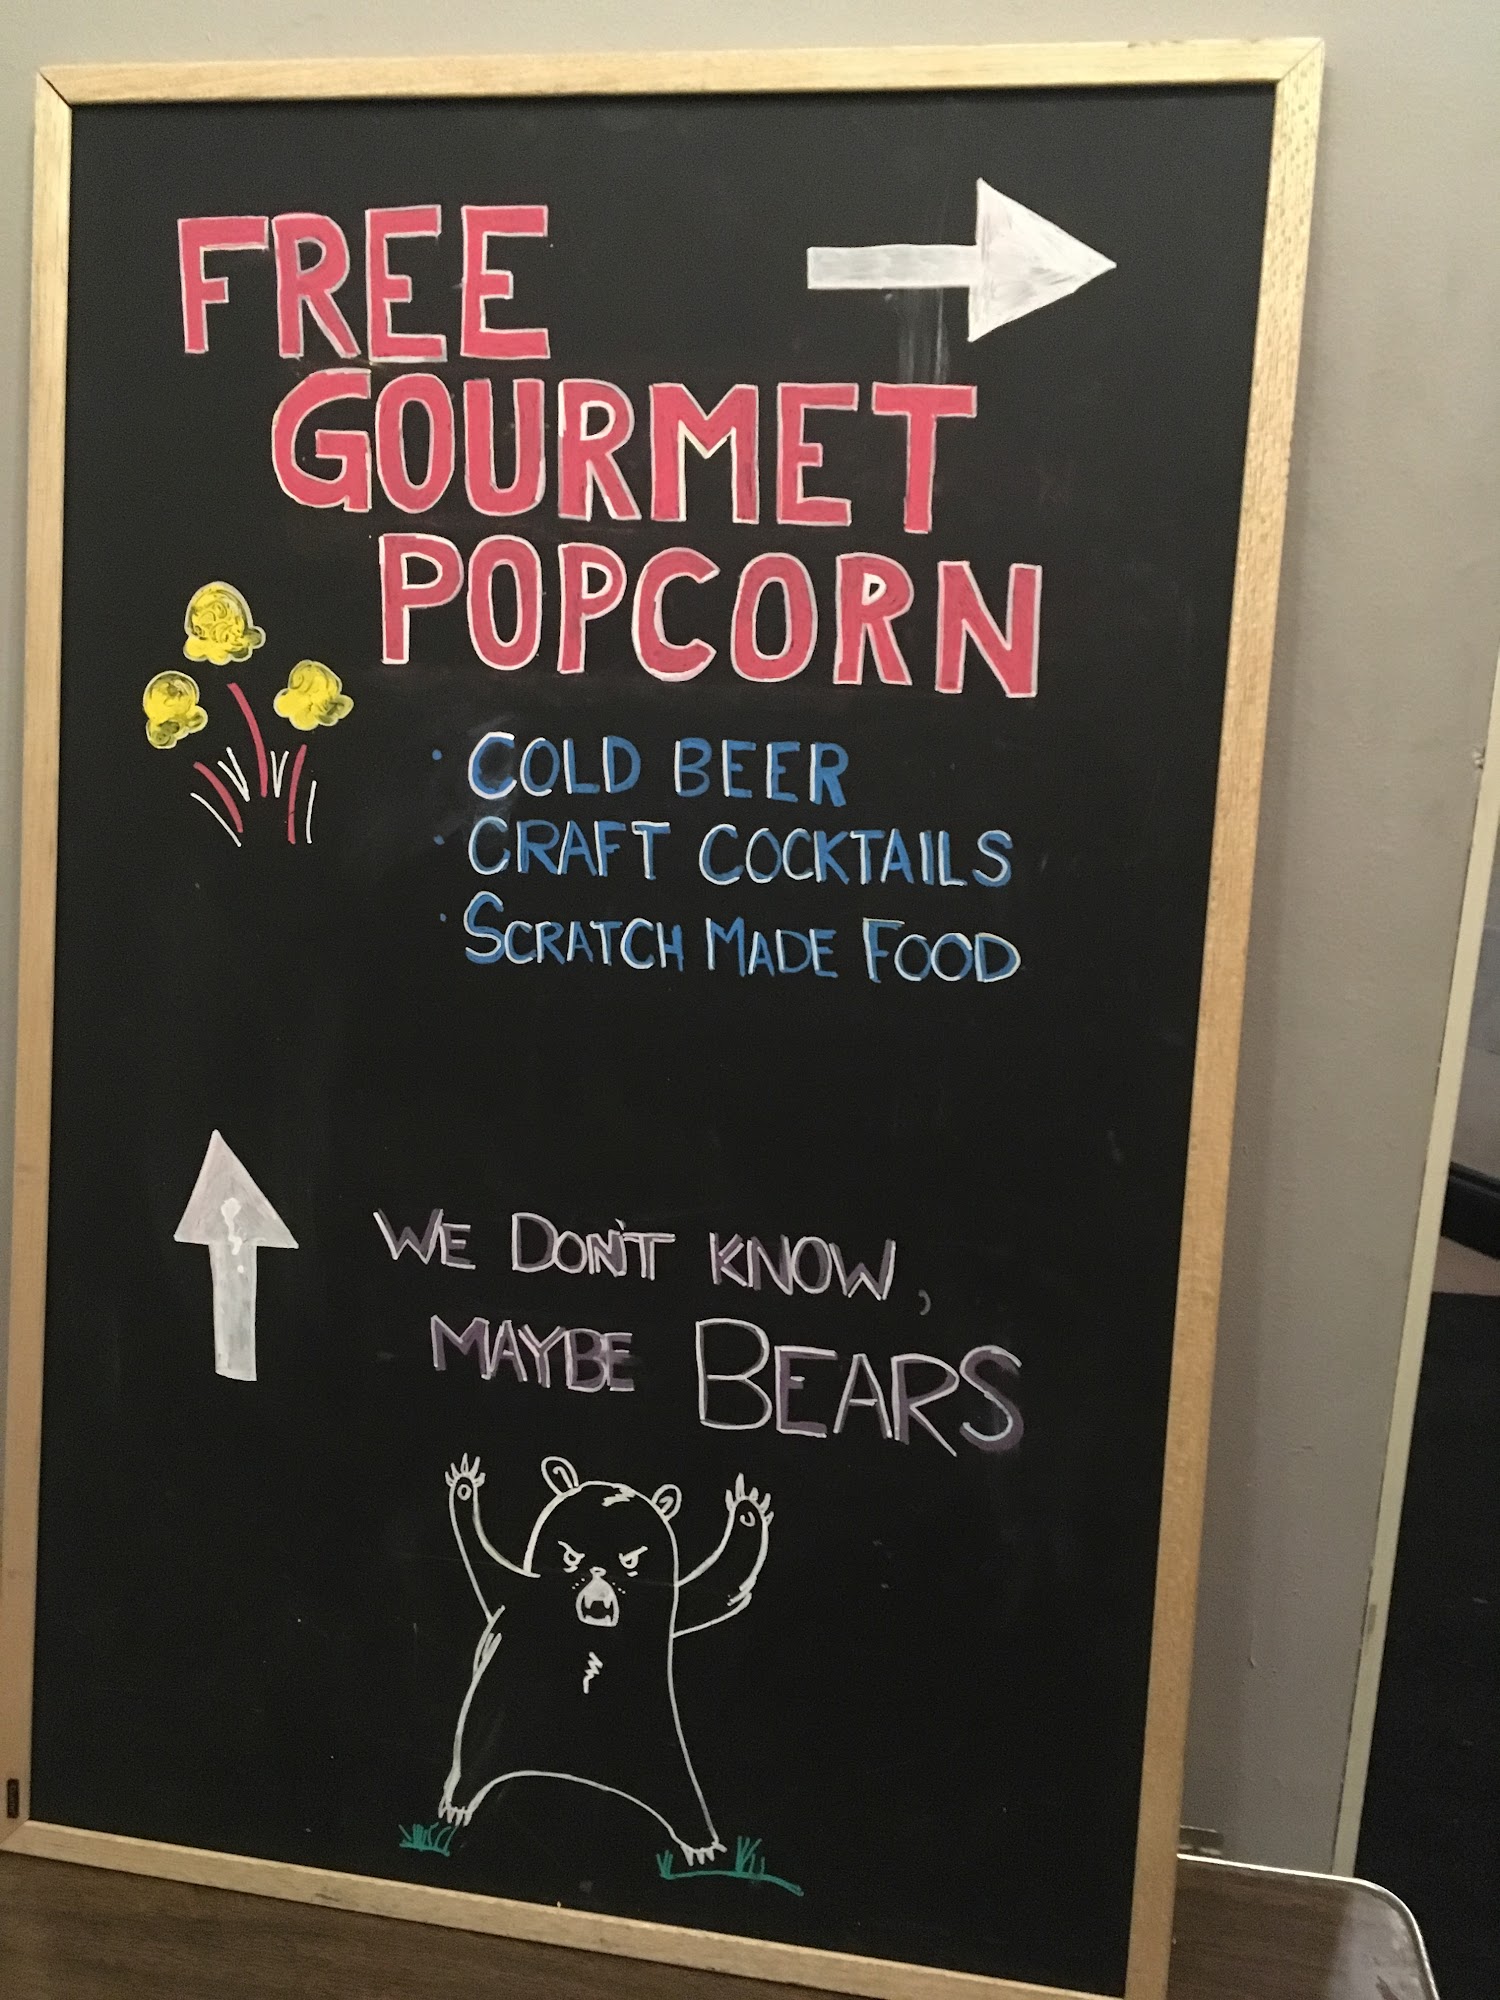 FREE
GOURMET
POPCORN
· COLD BEER
· CRAFT COCKTAILS
· SCRATCH MADE FOOD
WE DON'T KNOW,
MAYBE BEARS